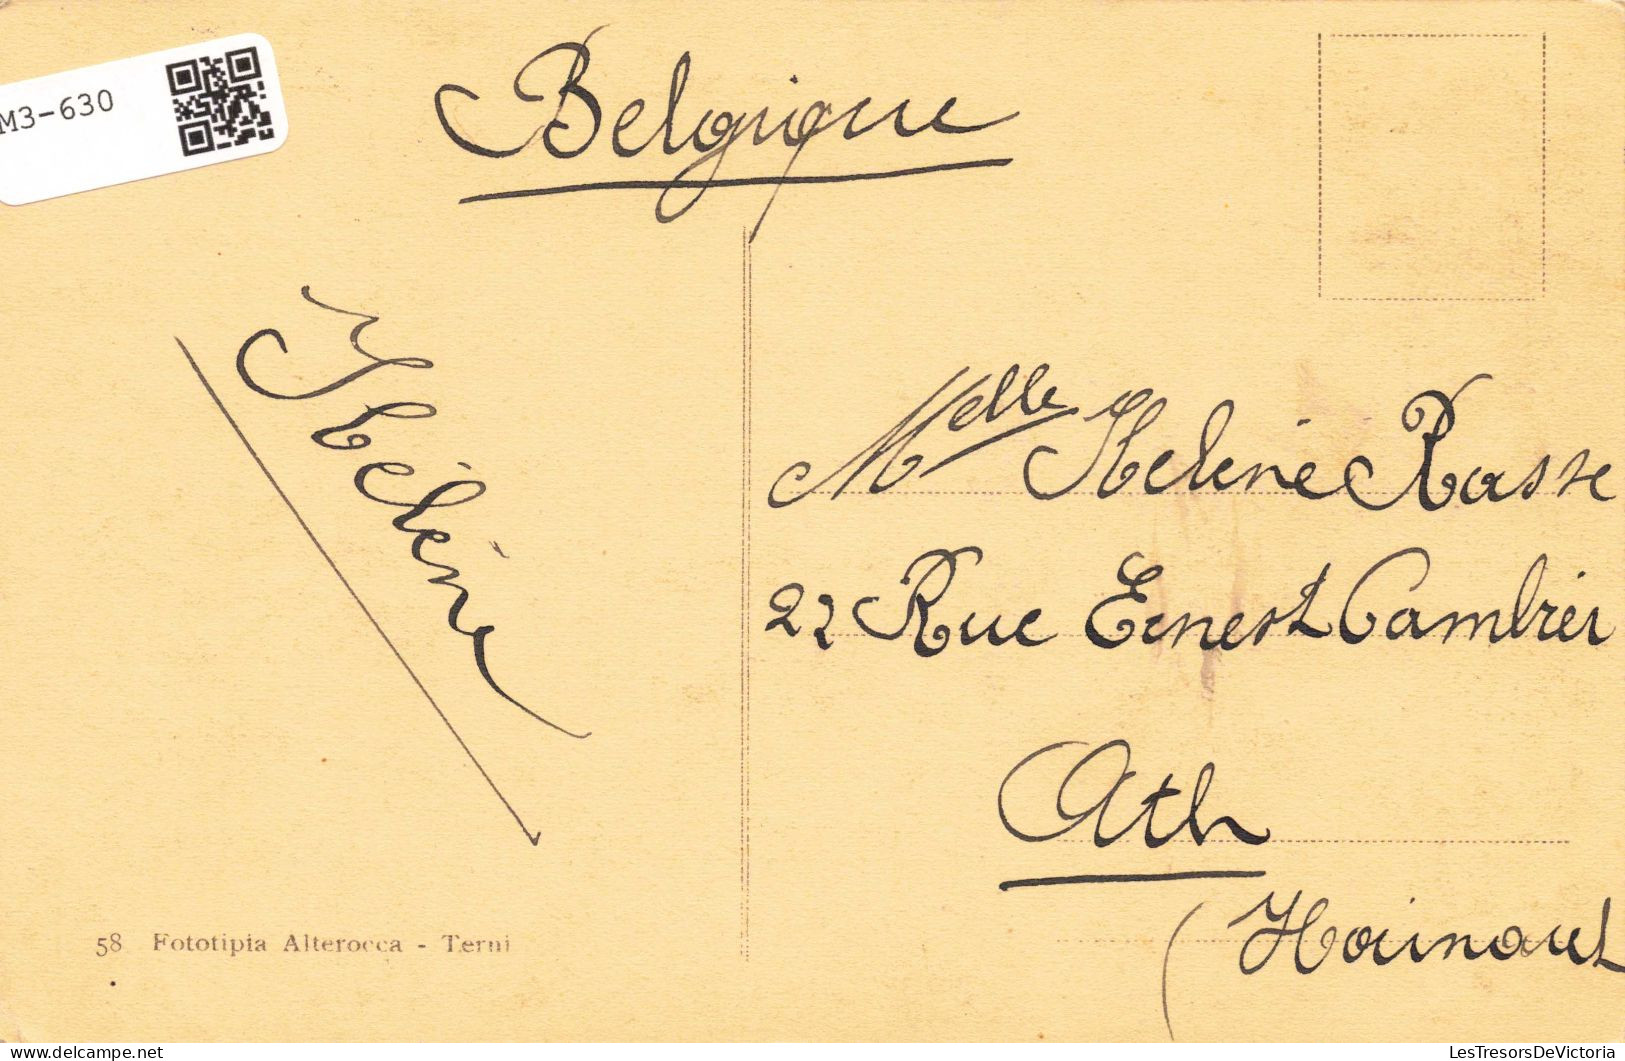 M3-630
Belgique
Hélène
Melle Helene Rasse
22 Rue Ernest Cambier
Ath
(Hainaut
58 Fototipia Alterocca - Terni
LesTresorsDeVictoria